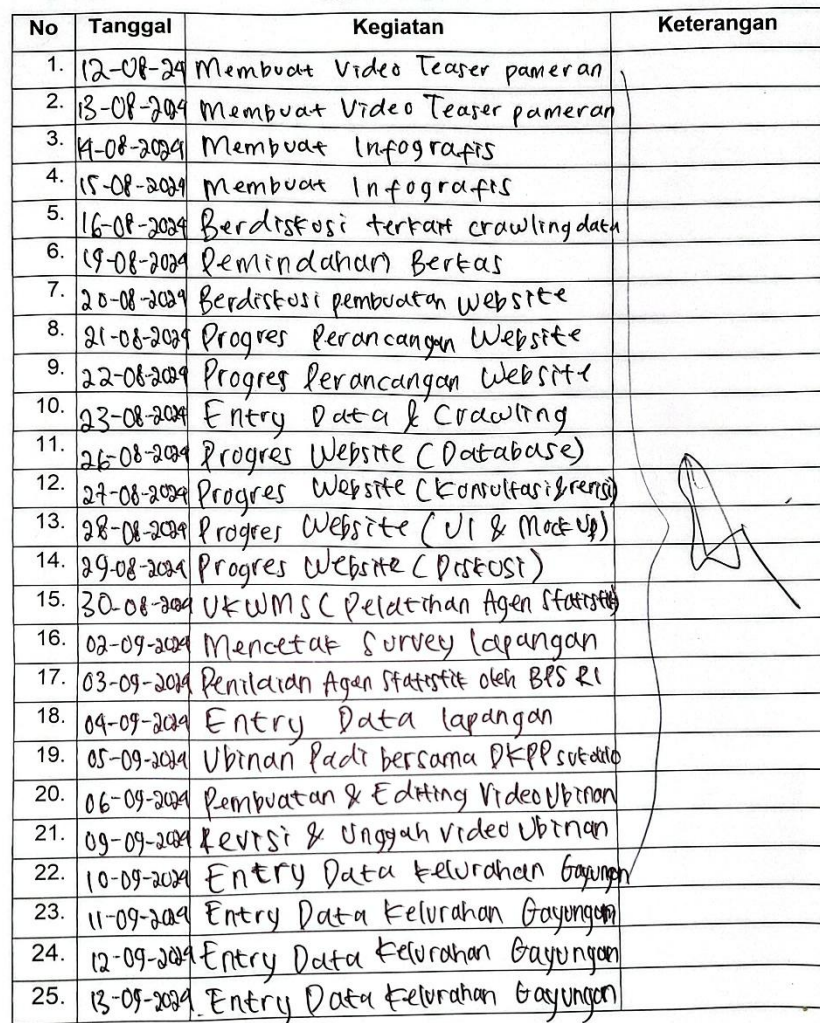 No Tanggal Kegiatan Keterangan
1. 12-08-24 Membuat Video Teaser pameran
2. 13-08-2024 Membuat Video Teaser pameran
3. 14-08-2024 Membuat Infografis
4. 15-08-2024 Membuat Infografis
5. 16-08-2024 Berdiskusi terkait crawling data
6. 19-08-2024 Pemindahan Berkas
7. 20-08-2024 Berdiskusi pembuatan website
8. 21-08-2024 Progres Perancangan Website
9. 22-08-2024 Progres Perancangan Website
10. 23-08-2024 Entry Data & Crawling
11. 26-08-2024 Progres Website (Database)
12. 27-08-2024 Progres Website (Konsultasi & revisi)
13. 28-08-2024 Progres Website (UI & Mock Up)
14. 29-08-2024 Progres Website (Diskusi)
15. 30-08-2024 UKWMS (Pelatihan Agen Statistik)
16. 02-09-2024 Mencetak Survey lapangan
17. 03-09-2024 Penilaian Agen Statistik oleh BPS RI
18. 04-09-2024 Entry Data lapangan
19. 05-09-2024 Ubinan Padi bersama DKPP
20. 06-09-2024 Pembuatan & Editing Video Ubinan
21. 09-09-2024 Revisi & Unggah video Ubinan
22. 10-09-2024 Entry Data Kelurahan Gayungan
23. 11-09-2024 Entry Data Kelurahan Gayungan
24. 12-09-2024 Entry Data Kelurahan Gayungan
25. 13-09-2024 Entry Data Kelurahan Gayungan